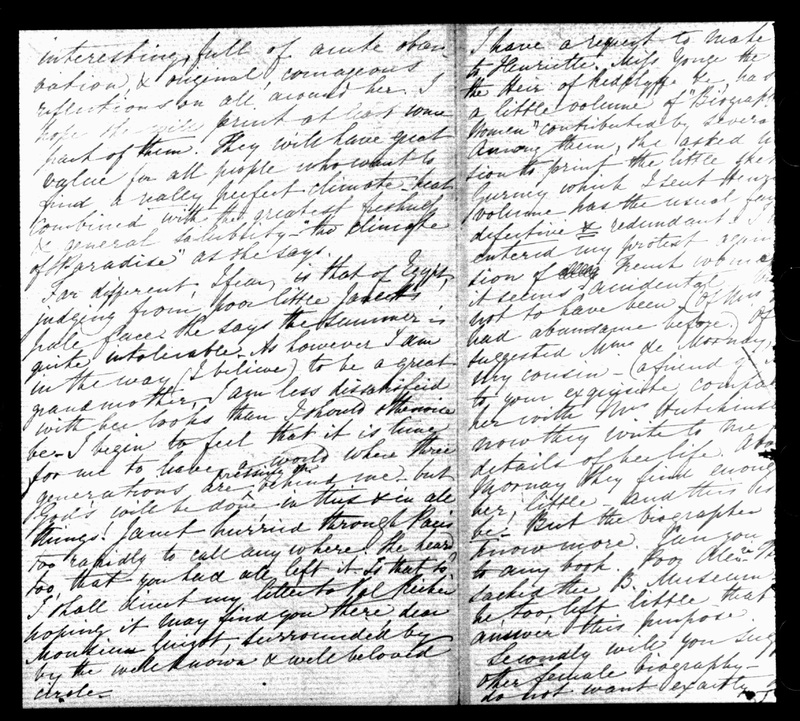 interesting, full of acute obser-
vation, & original, courageous
reflections on all around her. I
hope she will print at last some
part of them. They will have great
value for all people who want to
find a really perfect climate - heat
combined with the greatest freshness
& general salubrity - "the climate
of Paradise" as she says.
Far different, I fear, is that of Egypt,
judging from poor little Janet's
pale face. She says the summer is
quite intolerable. As however I am
in the way (I believe) to be a great
grandmother, I am less dissatisfied
with her looks than I should otherwise
be. I begin to feel that it is time
for me to leave a world where three
generations are pressing behind me - but
God's will be done in this & in all
things! Janet hurried through Paris
too rapidly to call any where. She heard
too, that you had all left it. Is that so?
I shall direct my letter to Val Richer
hoping it may find you there, dear
Monsieur Guizot, surrounded by
by the well known & well beloved
circle -
I have a request to make
to Henriette. Miss Yonge the
the Heir of Redclyffe &c, has
a little volume of "Biograph
Women" contributed by severa
Among them, she asked
sion to print the little sket
Gurney which I sent Henr
volume has the usual
defective & redundant. I
entered my protest again
sion of any French woman
it seems accidental
not to have been (of Mrs
had abundance before) Of
suggested Mme de Mornay,
My cousin - (a friend
to your exquisite compa
her with Mrs Hutchinso
now they write to me
details of her life. Abo
Mornay they find enough
her, little - and this
be. But the biographer
know more. Can you
to any book. Poor Alexre
sacked the B. Museum
he, too, left little that
answer this purpose
Secondly will you sugg
other female biography -
do not want exactly